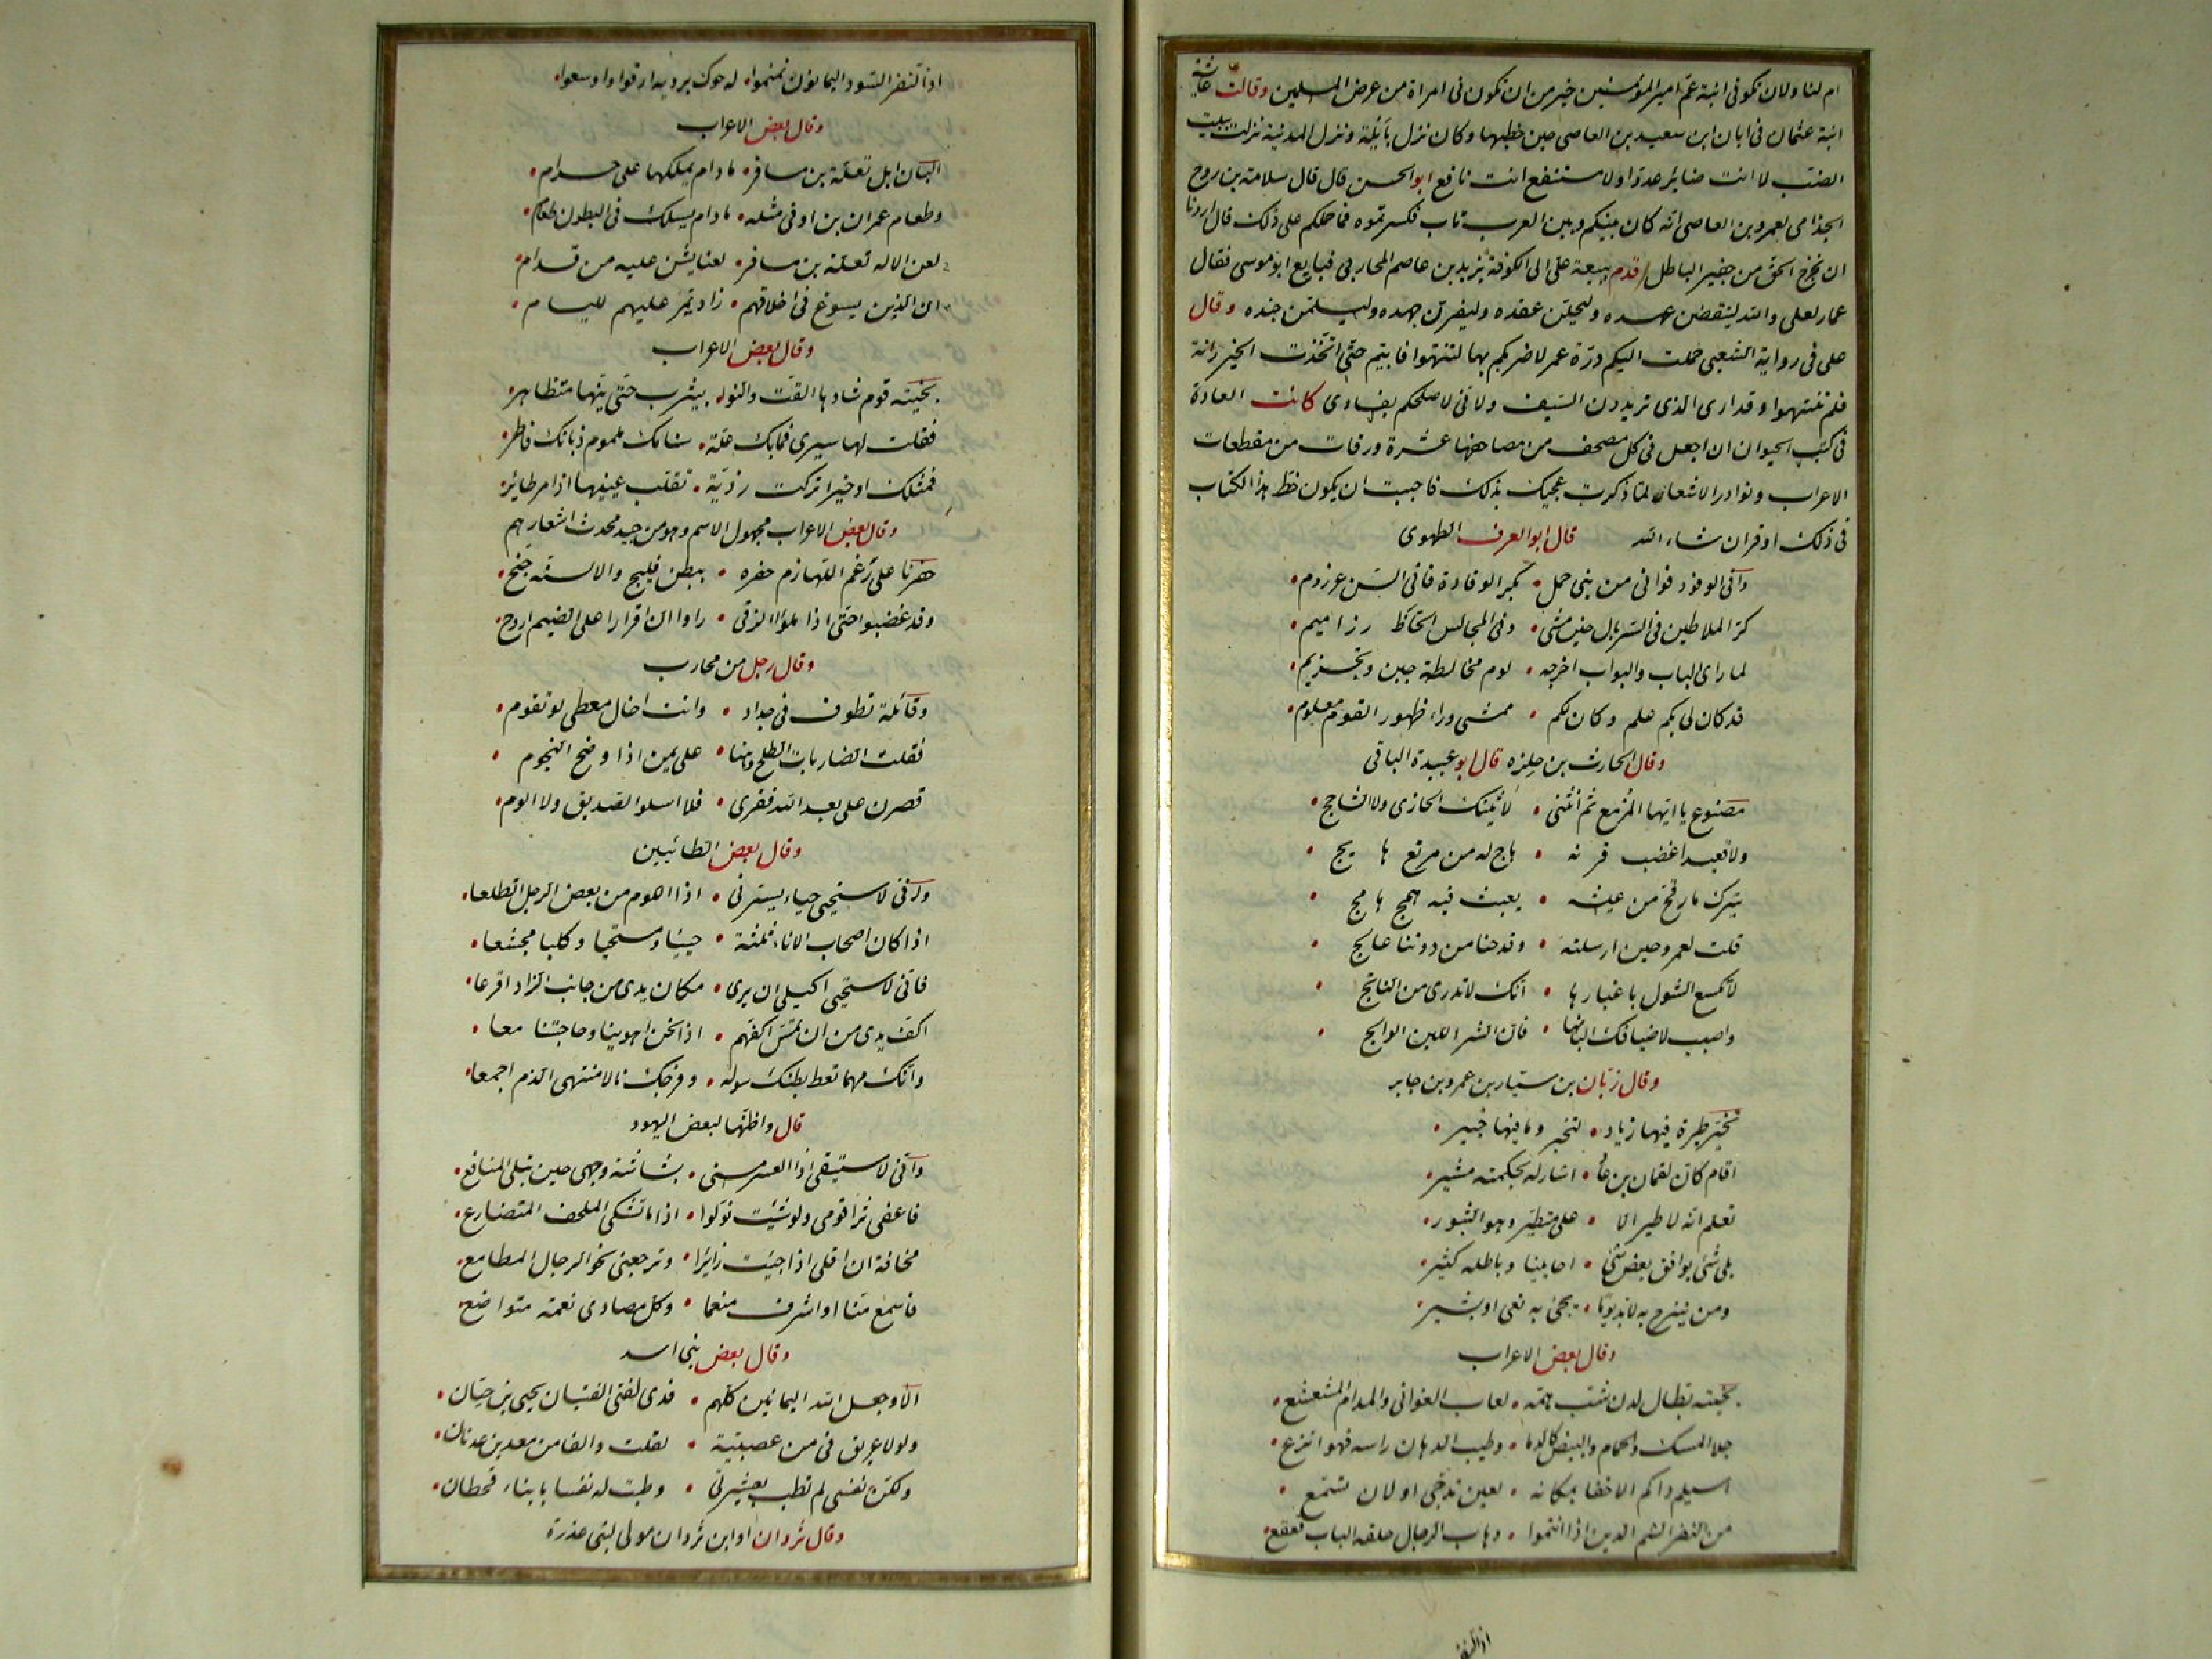 ام لنا ولان نكون فى ابنة عم امير المؤمنين خير من ان نكون فى امراة من عرض المسلمين وقالت عائشة
ابنة عثمان فى ابان ابن سعيد بن العاصى حين خطبها وكان نزل بايلة ونزل المدنية نزلت ببيت
الضب لا انت ضائر عدوا ولا مستنفع انت نافع ابو الحسن قال قال سلامة بن روح
الجذامى لعمرو بن العاصى انه كان بينكم وبين العرب باب فكسرتموه فما حملكم على ذلك قال اردنا
ان نخرج الحق من حفير الباطل قدم ببيعة على الى الكوفة يزيد بن عاصم المحاربى فبايع ابو موسى فقال
عمار لعلى والله لينقضن عهده وليحلن عقده وليفرن جهده وليسلمن جنده وقال
على فى رواية الشعبى حملت اليكم درة عمر لاضربكم بها لتنتهوا فابيتم حتى اتخذت الخيزرانة
فلم تنتهوا وقد ارى الذى تريدون السيف ولانى لا صلحكم بفسادى كانت العادة
فى كتب الحيوان ان اجعل فى كل مصحف من مصاحفها عشرة ورقات من مقطعات
الاعراب ونوادر الاشعار لما ذكرت عجبك بذلك فاحببت ان يكون حظ هذا الكتاب
فى ذلك اوفر ان شاء الله قال ابو العرف الطهوى
وافى الوفود فوافى من بنى حمل • بكر الوفادة فانى السن عرزوم •
كز الملاطين فى السربال حين مشى • وفى المجالس لحاظ رزاميم •
لما راى الباب والبواب اخرجه • لوم مخالطة جبن وتخزيم •
قد كان لى بكم علم وكان لكم • ممشى وراء ظهور القوم معلوم •
وقال الحارث بن حلزه قال ابو عبيدة الباقى
مصنوع يا ايها المزمع ثم انثنى • لا يثنك الحازى ولا الشاحج •
ولا قعيد اغضب قرنه • هاج له من مرتع هايج •
يترك ما رقح من عيشه • يعبث فيه همج هامج •
قلت لعمرو حين ارسلته • وقد حنا من دوننا عالج •
لا تكسع الشول باغبارها • انك لا تدرى من الناتج •
واصبب لاضيافك البانها • فان الشر اللبن الوالج •
وقال زبان بن سيار بن عمرو بن جابر
تخير طيرة فيها زياد • لتخبره وما فيها خبير •
اقام كان لقمان بن عاد • اشار له بحكمته مشير •
تعلم انه لا طير الا • على متطير وهو الثبور •
بلى شئ يوافق بعض شئ • احايينا وباطله كثير •
ومن ينزح به لابد يوما • يجئ به نعى او بشير •
وقال بعض الاعراب
بخيته بطال لدن شب همه • لعاب الغوانى والمدام المشعشع •
جلا المسك والحمام والبيض كالدما • وطيب الدهان راسه فهو انزع •
اسيلم ذاكم لا خفا بمكانه • لعين تدجى او لاذن تسمع •
من النفر الشم الذين اذا انتموا • وهاب الرجال حلقة الباب قعقع •
اذا النفر
اذا النفر السود اليمانون نمنموا • له حوك برديه ارقوا واوسعوا •
وقال بعض الاعراب
البان ابل تعلة بن مسافر • ما دام يملكها على حرام •
وطعام عمران بن اوفى مثله • ما دام يسلك فى البطون طعام •
لعن الاله تعلة بن مسافر • لعنا يشن عليه من قدام •
ان الذين يسوغ فى اخلاقهم • زاد يمر عليهم لليام •
وقال بعض الاعراب
بخيته قوم شادها القت والنوى بيثرب حتى نيها متظاهر •
فقلت لها سيرى فما بك علة • سنامك ملموم ونابك فاطر •
فمثلك او خيرا تركت رذية • تقلب عينيها اذا مر طائر •
وقال بعض الاعراب مجهول الاسم وهو من جيد محدث اشعارهم
حفرنا على رغم اللهازم حفره • ببطن فليج والاسنة جنح •
وقد غضبوا حتى اذا ملوا الزقى • راوا ان اقرارا على الضيم اروح •
وقال رجل من محارب
وقائلة تطوف فى جداد • وانت اخال معطى لو تقوم •
فقلت الضاربات الطلح وهنا • على يمين اذا وضح النجوم •
قصرن على بعد الله فقرى • فلا اسلو الصديق ولا الوم •
وقال بعض الطائيين
وانى لاستحيى حياء يسترنى • اذا اهوم من بعض الرجال تطلعا •
اذا كان اصحاب الاناء ثلثة • حييا ومستحيا وكلبا مجشعا •
فانى لاستحيى اكيلى ان يرى • مكان يدى من جانب الزاد اقرعا •
اكف يدى من ان تمس اكفهم • اذا نحن اهوينا وحاجتنا معا •
وانك مهما تعط بطنك سوله • وفرجك نالا منتهى الذم اجمعا •
قال واظنها لبعض اليهود
وانى لاستبقى اذا العسر مسنى • بشاشة وجهى حين تبلى المنافع •
فاعفى ثرا قومى ولو شئت نولوا • اذا ما تشكى الملحف المتضارع •
مخافة ان اقلى اذا جئيت زايرا • وترجعنى نحو الرجال المطامع •
فاسمع منا او اشرف منعما • وكل مصادى نعمة متواضع •
وقال بعض بنى اسد
الا وجعل الله اليمانين كلهم • فدى لفتى الفتيان يحيى بن حيان •
ولولا عريق فى من عصبية • لقلت والفا من معد بن عدنان •
ولكن نفسى لم تطب بعشيرتى • وطبت له نفسا بابناء قحطان •
وقال ثروان او ابن ثروان مولى لبنى عذرة